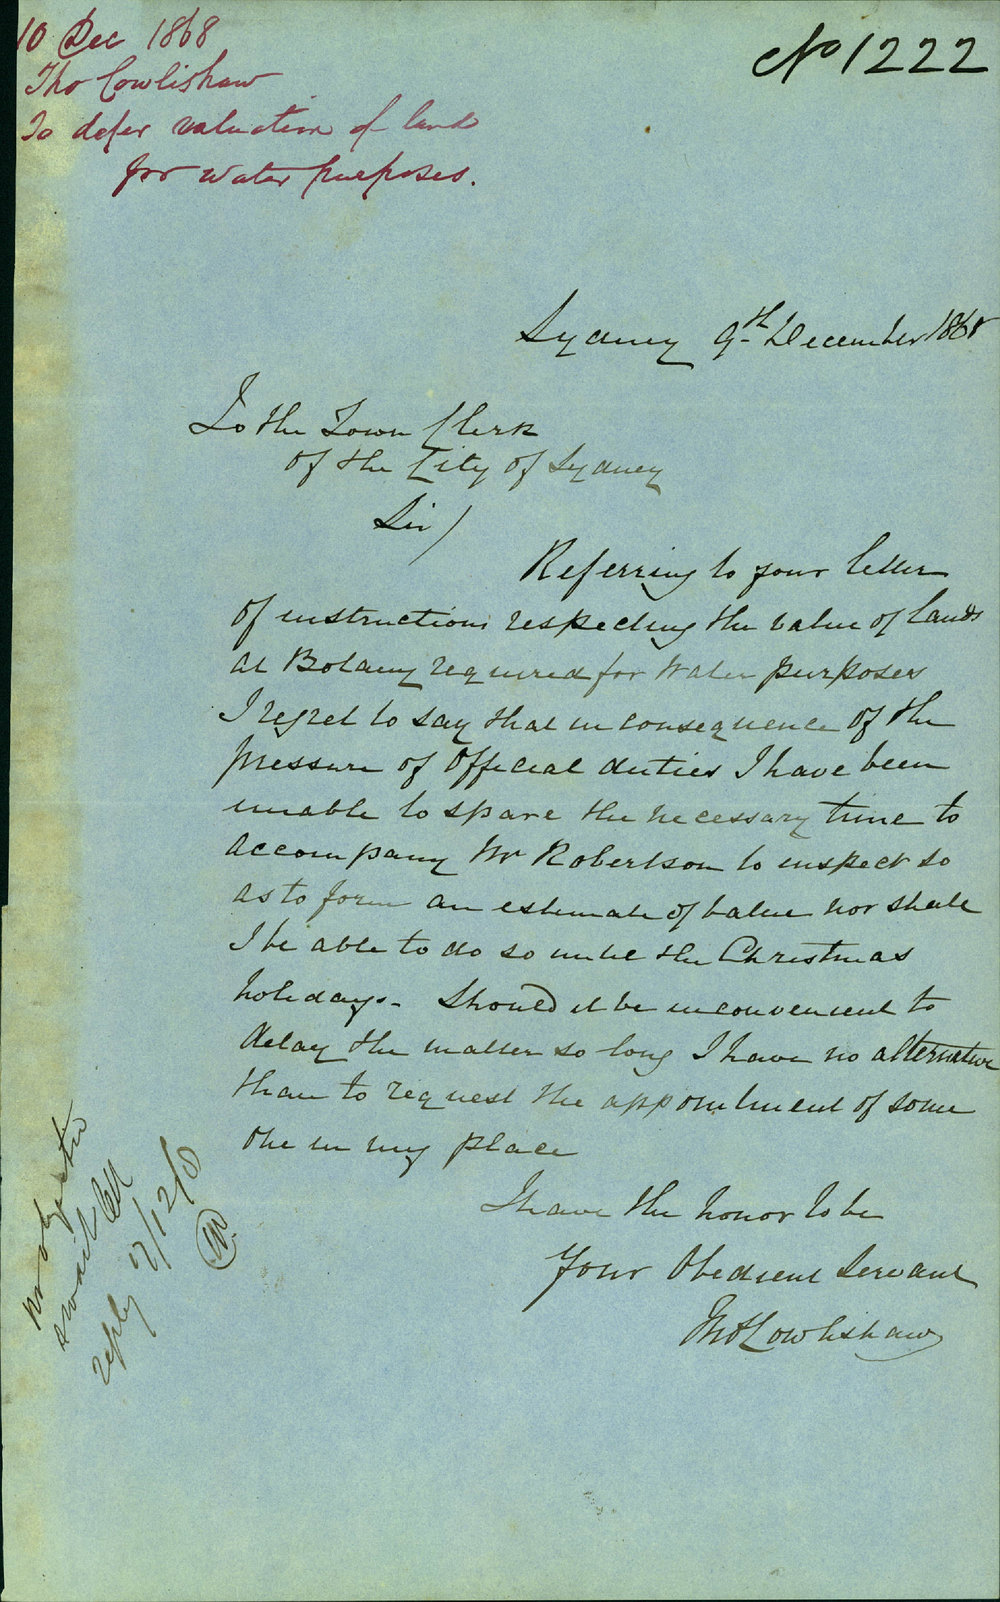 10 Dec 1868
Tho Cowlishaw
To defer valuation of land
for water purposes.
No 1222
Sydney 9th December 1868
To the Town Clerk
of the City of Sydney
Sir/
Referring to your letter
of instructions respecting the value of lands
at Botany required for Water purposes
I regret to say that in consequence of the
pressure of Official duties I have been
unable to spare the necessary time to
accompany Mr Robertson to inspect so
as to form an estimate of value nor shall
I be able to do so until the Christmas
holidays - Should it be inconvenient to
delay the matter so long I have no alternative
than to request the appointment of some
one in my place
I have the honor to be
Your Obedient Servant
Tho Cowlishaw
no objection
await
reply